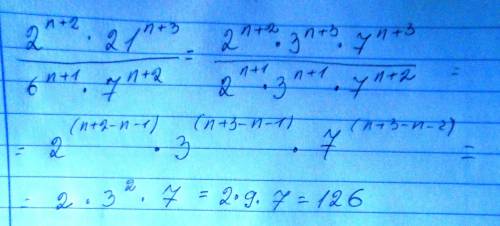 2^{n+2} · 21^{n+3} / 6^{n+1} · 7^{n+2} = 2^{n+2} · 3^{n+3} · 7^{n+3} / 2^{n+1} · 3^{n+1} · 7^{n+2} =
= 2^{(n+2-n-1)} · 3^{(n+3-n-1)} · 7^{(n+3-n-2)} =
= 2 · 3^2 · 7 = 2·9·7 = 126